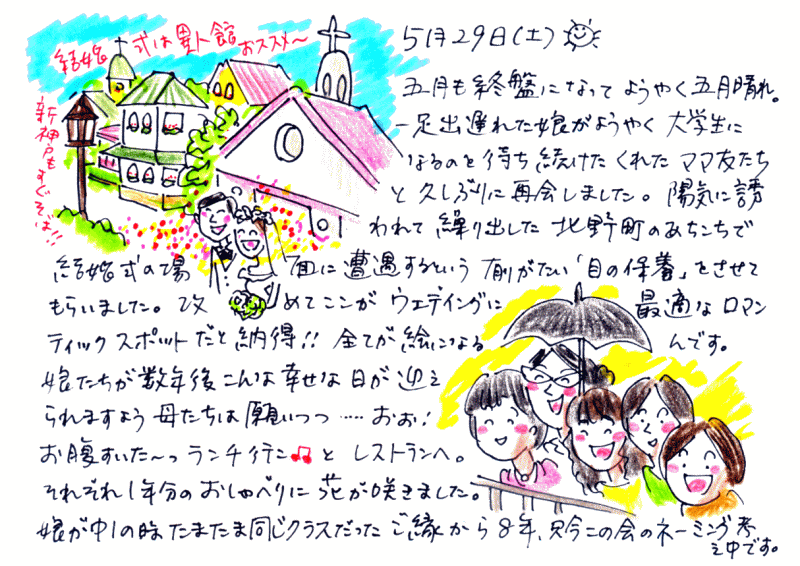 結婚式は異人館おススメ〜
新神戸もすぐそば!!
5月29日(土)
五月も終盤になって ようやく五月晴れ。
一足出遅れた娘がようやく 大学生に
なるのを待ち続けてくれた ママ友たち
と 久しぶりに再会しました。 陽気に誘
われて 繰り出した 北野町のあちこちで
結婚式の場面に遭遇するという 有難がたい「目の保養」をさせて
もらいました。 改めてここが ウエディングに 最適な ロマン
ティックスポットだと納得!! 全てが絵になるんです。
娘たちが数年後こんな幸せな日が迎え
られますよう 母たちは願いつつ …… おお!
お腹すいた〜っ ランチ行こ♫ と レストランへ。
それぞれ1年分のおしゃべりに 花が咲きました。
娘が中1の時たまたま同じクラスだった ご縁から8年、只今この会のネーミング考
え中です。